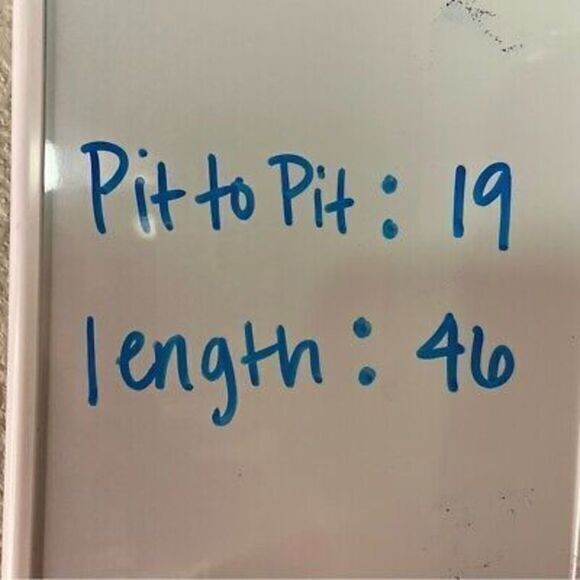 Pit to Pit: 19
length: 46